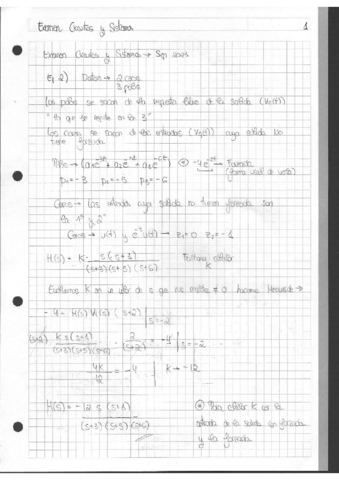 Examen Circuitos y Sistemas 1
Examen Circuitos y Sistemas → Sep 2021
Ej 2) Datos → 2 ceros
3 polos
Los polos se sacan de la respuesta libre de la salida (V₀(t))
"Es que se repite en las 3"
Los ceros se sacan de las entradas (Vg(t)) cuya salida no
tiene forzada
Polos → (a₁e⁻³ᵗ + a₂e⁻⁵ᵗ + a₃e⁻⁶ᵗ) ⊛ -4e⁻²ᵗ → Forzada
p₁ = -3 p₂ = -5 p₃ = -6
Ceros → Las entradas cuya salida no tienen forzada son
la 1ª y 2ª
Ceros → u(t) y e⁻ᵗu(t) → z₁ = 0 z₂ = -1
H(s) = K · s(s+1) / (s+3)(s+5)(s+6) Faltaría calcular
K
Evaluamos K en un valor de s que nos ≠ 0
-4 = H(s) Vi(s) (s+2) | s=-2
(s+2) K s(s+1) / (s+3)(s+5)(s+6) · 2 / (s+2) = -4 | s=-2
4K / 12 = -4 | K → -12
H(s) = -12 s (s+1) / (s+3)(s+5)(s+6)
⊛ Para calcular K con la
entrada de la salida con forzada
y la forzada